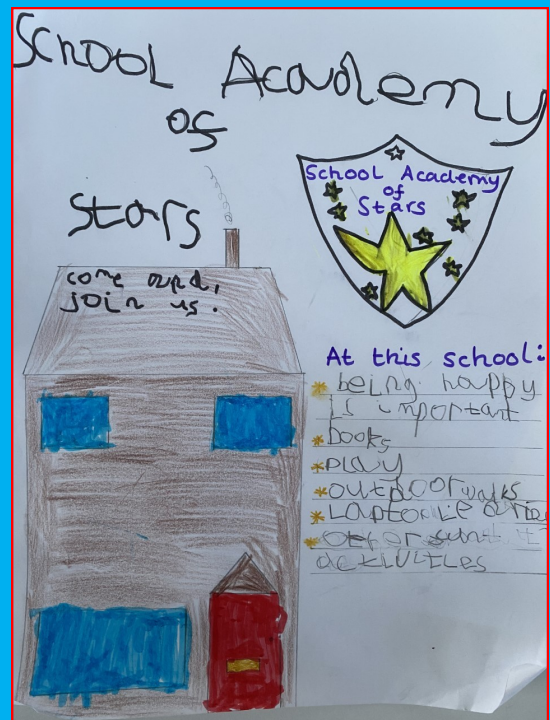 School Academy
of
Stars
School Academy
of
Stars
come and
join us.
At this school:
* being happy
is important
* books
* play
* outdoor walks
* 
* other